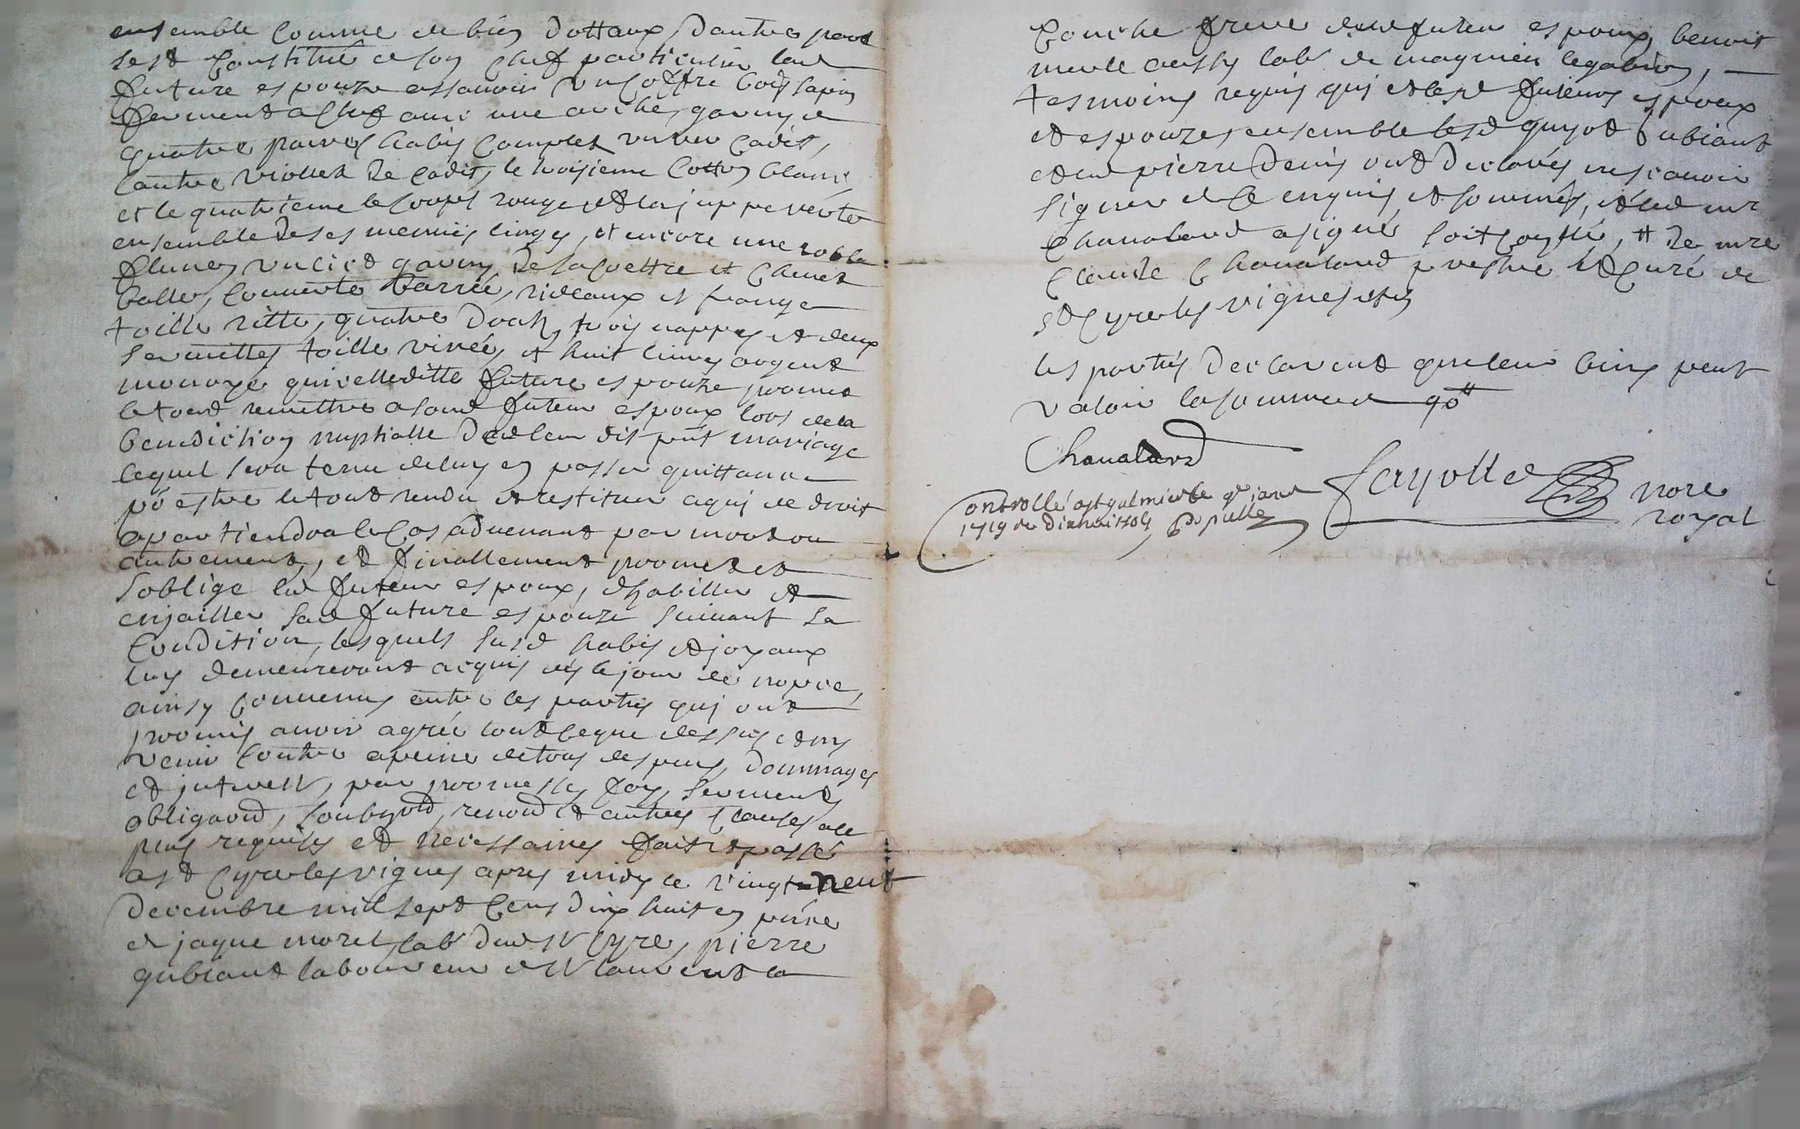 ensemble comme de bien dottaux, dautre part
sest constitué de son chef particulier lad
future espouze assavoir un coffre bois sapin
fermend a clef avec une arche, garny de
quatre paires habis complet un bleu cadis,
lautre viollet de cadis, le troisieme cotton blanc
et le quatrieme le corps rouge et la juppe verte
ensemble de ses menus linges, et encore une robbe
garny de sa coettre et chevet
balle, couverte barrée, rideaux et frange
toille ritte, quatre drah, trois nappes et deux
serviettes toille virée, et huit livres argent
monoye quicelleditte future espouze promet
le tout remettre a sond futeur espoux lors de la
benediction nuptialle de leur dit pnt mariage
lequel sera tenu de luy en passer quittance
po estre le tout rendu et restitue a qui de droit
apartiendra le cas advenant par mort ou
autrement, et finallement promet et
soblige led futeur espoux, dhabiller et
enjoailler sad future espouze suivant sa
condition, lesquels susd habis et joyaux
luy demeureront acquis des le jour de nopce,
ainsy convenus entre les parties qui ont
promis avoir agrée tout ce que dessus et ny
venir contre a peine de tous despens, dommages
et interest, par promesses foy, serment,
obligaond, soubzond, renond et autres clauses a ce
plus requises et necessaires fait et passé
a st Cyre les vignes apres midy ce vingt neuf
decembre mil sept cens dix huit en pnce
de jaque morel lab dud st Cyre, pierre
gubiand laboureur de st laurent la
Conche frere dud futeur espoux, benoit
merle aussy lab de magnieu legabion,
tesmoins requis qui et lesd futeurs espoux
et espouze ensemble lesd guyot gubiant
et led pierre denis ont declarés ne scavoir
signer de ce enquis et sommés, et led mre
Chanaland a signé soit coyllé, # de mre
Claude Chanaland prestre et curé de
st Cyre les vignes
les parties declarent que leur biens peut
valoir la somme de 90#
Chanaland
Fayolle nore
royal
Controllé a st galmier le 9e janr
1719 re dix huit sols